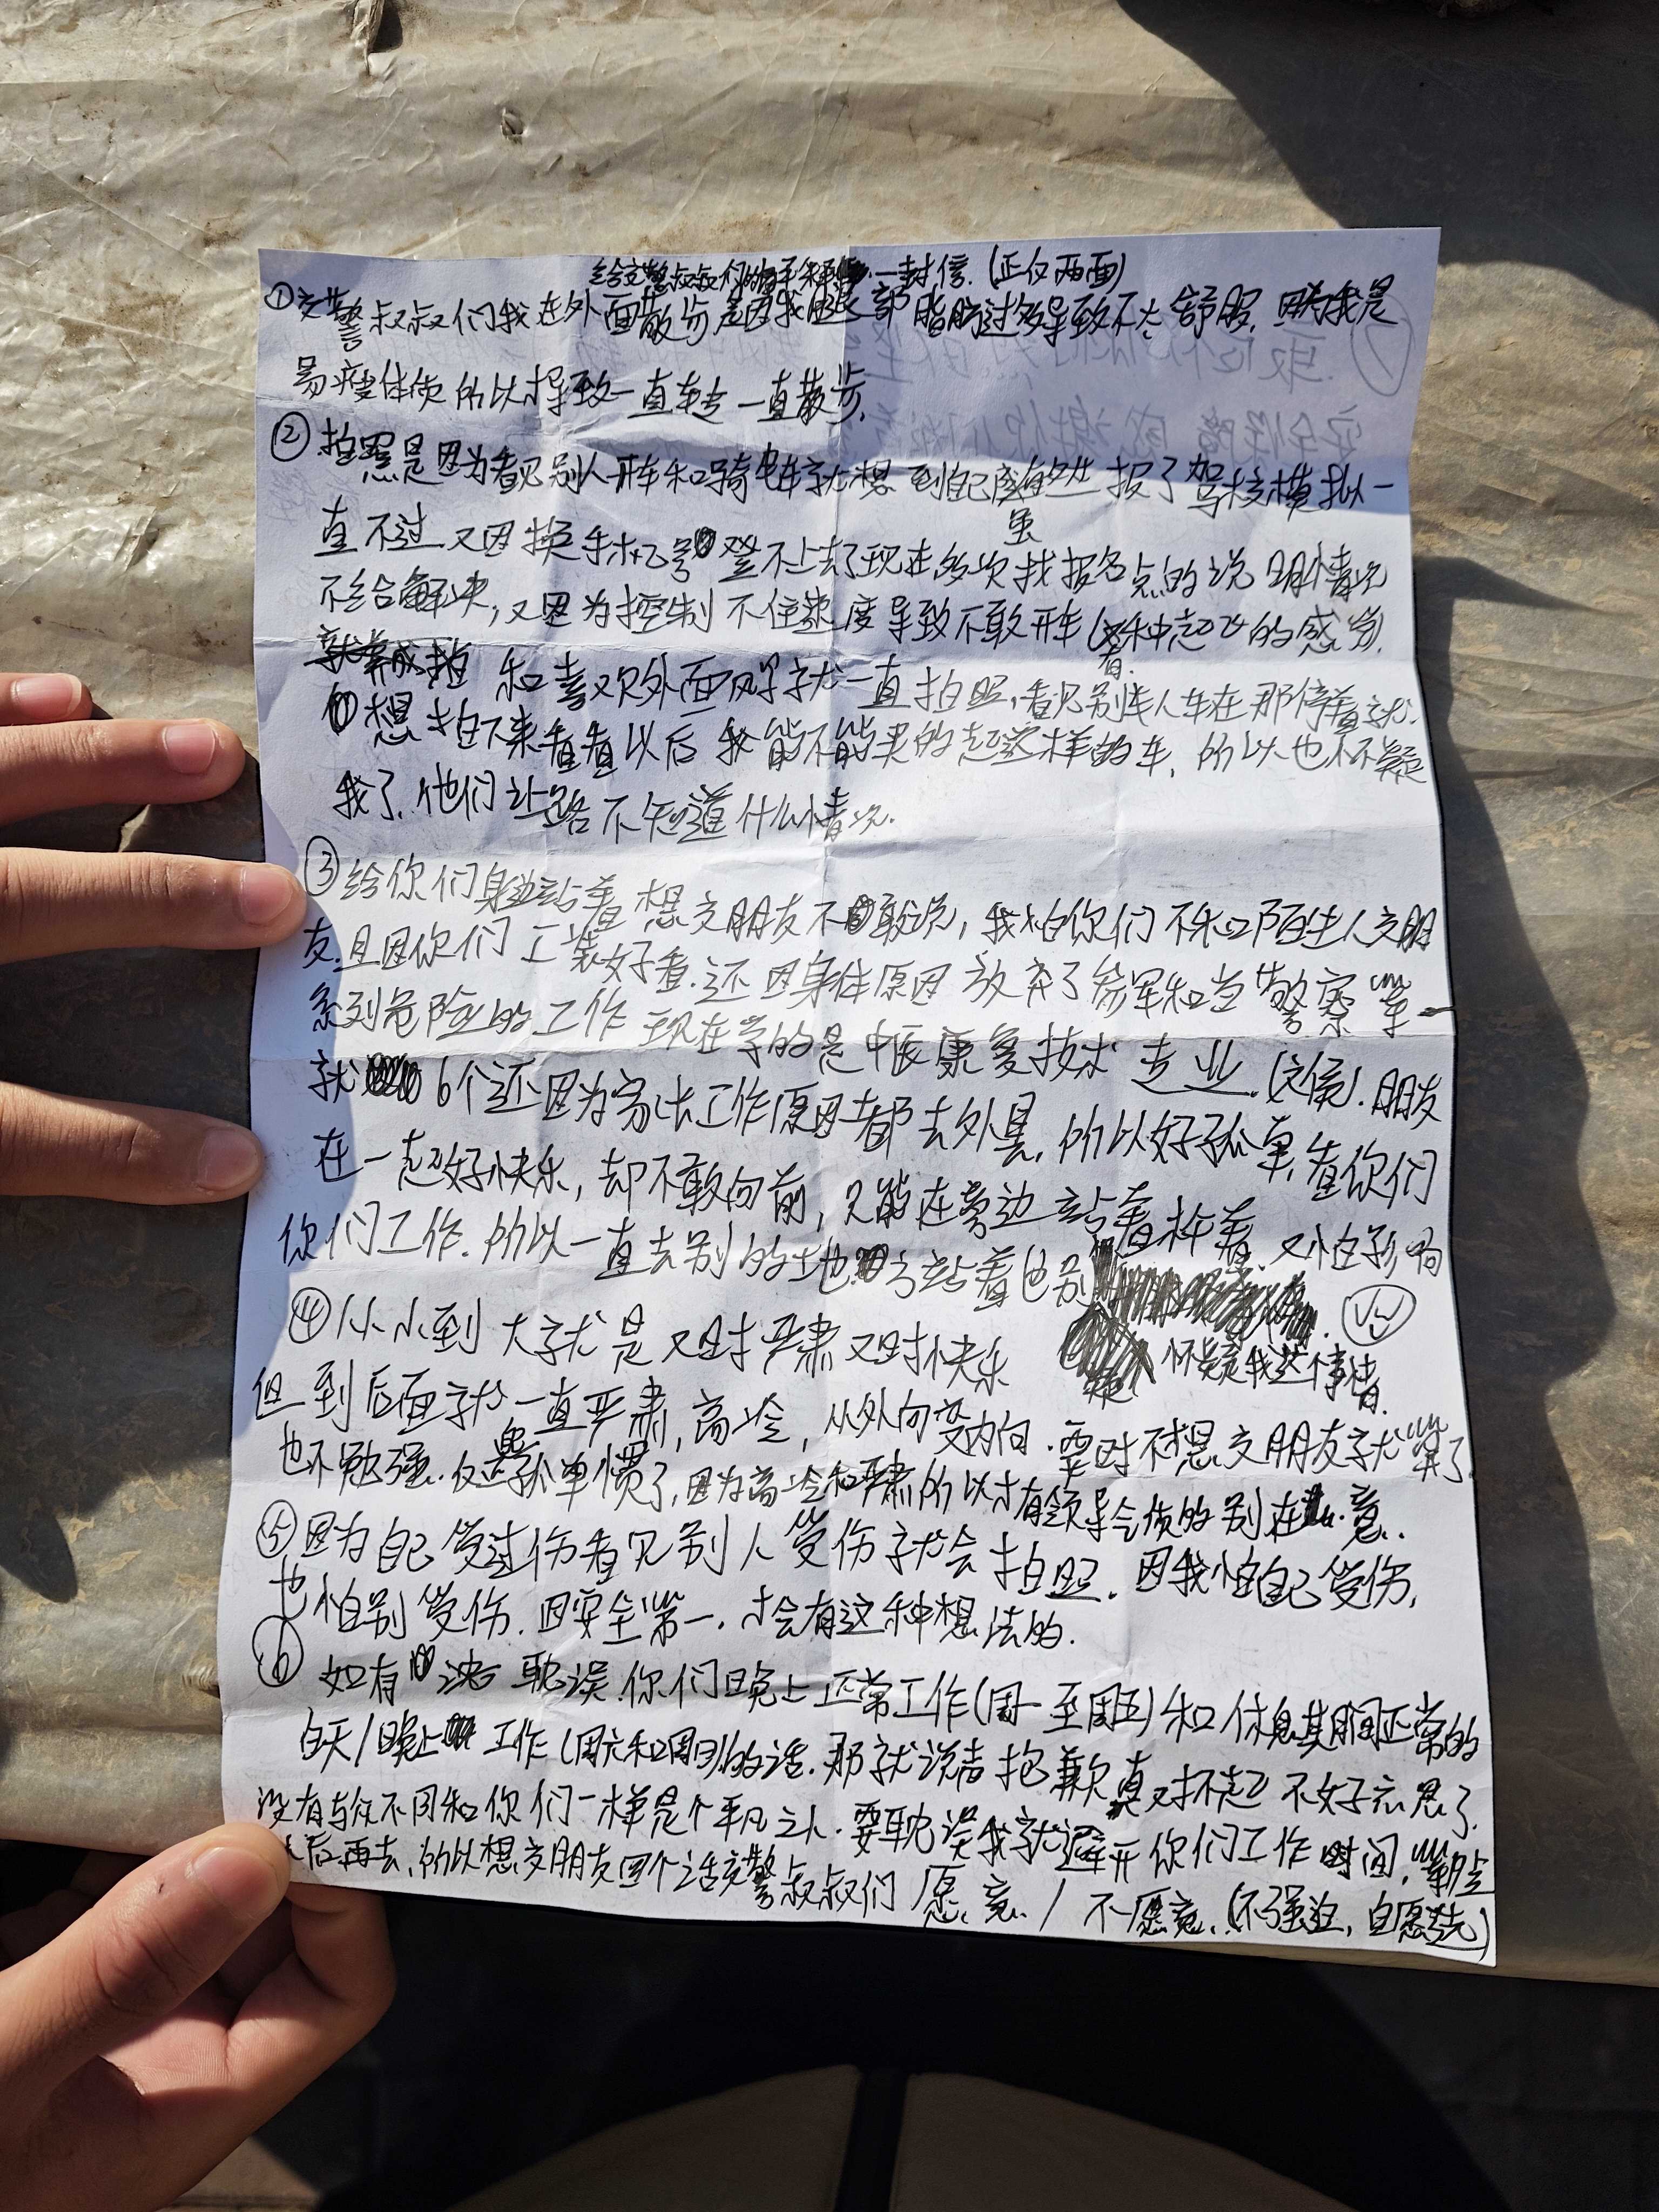 给交警叔叔们的一封信.(正反两面)
①交警叔叔们我在外面散步是因我腿部脂肪过多导致不太舒服,因为我是
易瘦体质所以才导致一直转一直散步.
②.拍照是因为看见别人开车和骑电车就想到自己虽然报了驾校模拟一
直不过.又因换手机号登不上去了现在多次找报名点的说明情况
不给解决,又因为控制不住速度导致不敢开车(有种起飞的感觉)
和喜欢外面风景就一直拍照,看见别人车在那停着就
想拍下来看看以后我能不能买的起这样的车,所以也不怀疑
我了.他们让路不知道什么情况.
③给你们身边站着想交朋友不敢说,我怕你们不和陌生人交朋
友.且因你们工装好看.还因身体原因放弃了参军和当警察等一
系列危险的工作现在学的是中医康复技术专业.(文侯).朋友
就6个还因为家长工作原因都去外县,所以好孤单,看你们
在一起好快乐,却不敢向前,只能在旁边站着看着.又怕影响
你们工作.所以一直去别的地方站着也别
怀疑我这个事情.
④从小到大就是又时严肃又时快乐
但到后面就一直严肃,高冷,从外向变内向.要时不想交朋友就算了
也不勉强.仅是孤单惯了,因为高冷和严肃所以才有领导气质的别在意.
⑤因为自己受过伤看见别人受伤就会拍照.因我怕自己受伤,
也怕别受伤.因安全第一.才会有这种想法的.
⑥如有耽误你们晚上正常工作(周一至周五)和休息期间正常的
白天/晚上工作(周六和周日)的话.那就说声抱歉真对不起不好意思了.
没有与众不同和你们一样是个平凡之人.要耽误我就避开你们工作时间,等
后再去,所以想交朋友回个话交警叔叔们愿意/不愿意.(不强迫,自愿选)